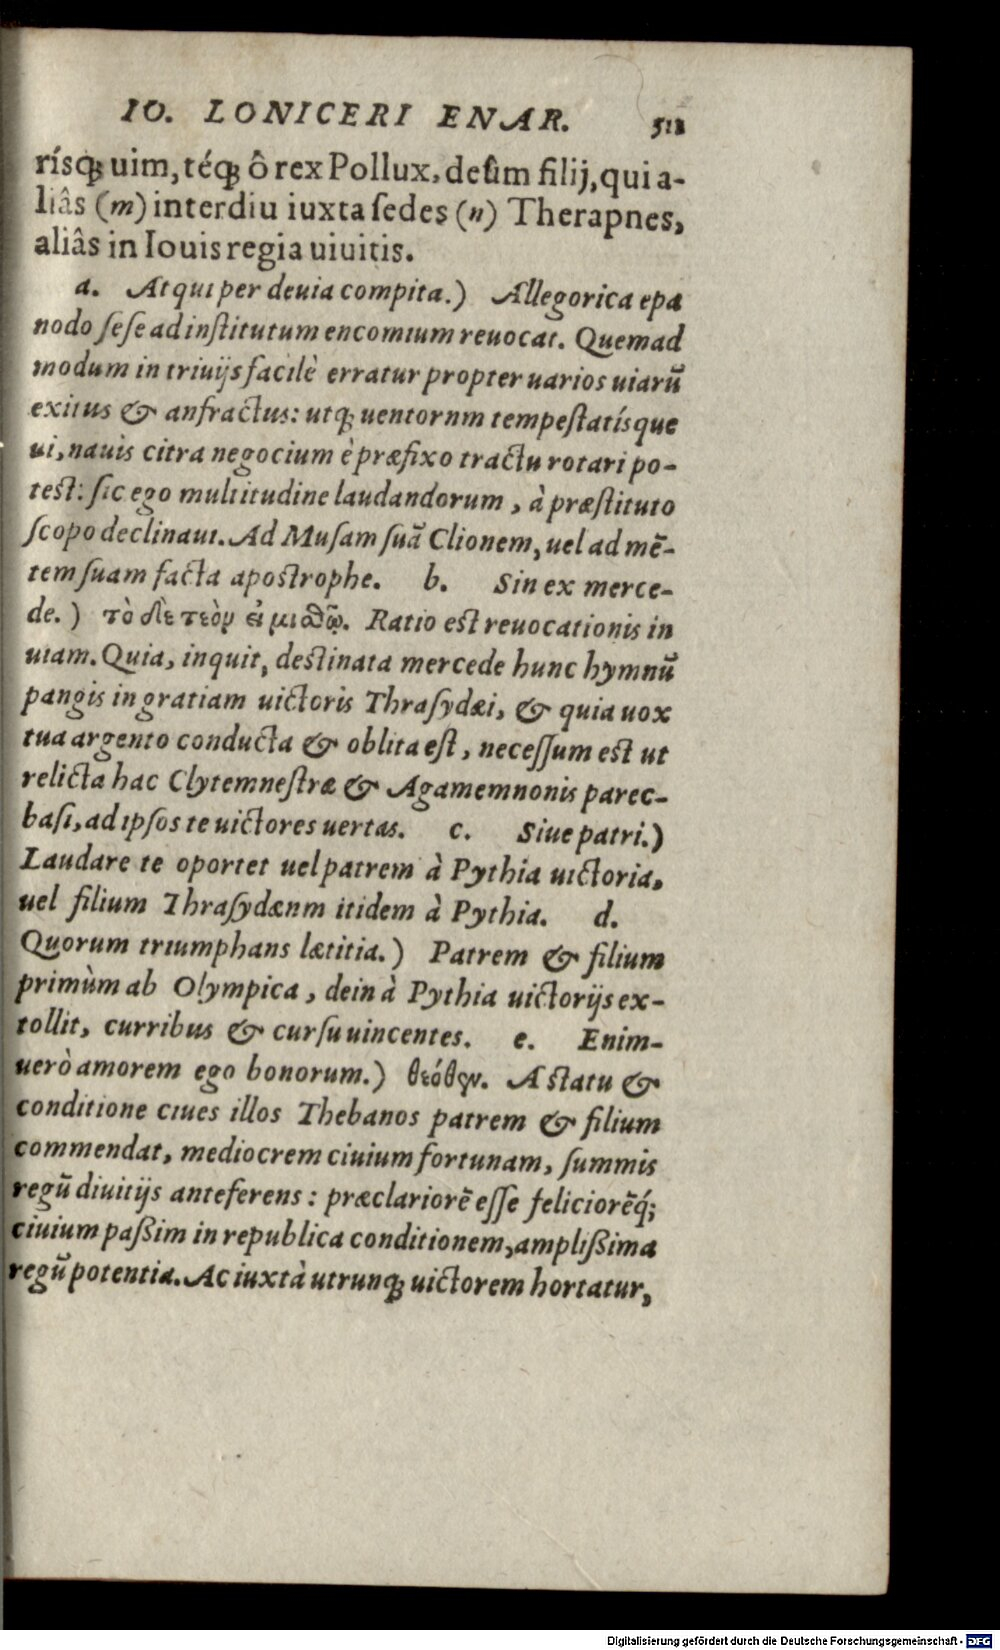 IO. LONICERI ENAR. 511
rísq; uim, téq; ô rex Pollux, deûm filij, qui a-
liâs (m) interdiu iuxta sedes (n) Therapnes,
aliâs in Iouis regia uiuitis.
a. Atqui per deuia compita.) Allegorica epa
nodo sese ad institutum encomium reuocat. Quemad
modum in triuijs facilè erratur propter uarios uiarũ
exitus & anfractus: utq; uentornm tempestatísque
ui, nauis citra negocium è præfixo tractu rotari po-
test: sic ego multitudine laudandorum, à præstituto
scopo declinaui. Ad Musam suã Clionem, uel ad mẽ-
tem suam facta apostrophe. b. Sin ex merce-
de.) τὸ δὲ τεὸν εἰ μισθῷ. Ratio est reuocationis in
uiam. Quia, inquit, destinata mercede hunc hymnũ
pangis in gratiam uictoris Thrasydæi, & quia uox
tua argento conducta & oblita est, necessum est ut
relicta hac Clytemnestræ & Agamemnonis parec-
basi, ad ipsos te uictores uertas. c. Siue patri.)
Laudare te oportet uel patrem à Pythia uictoria,
uel filium Thrasydænm itidem à Pythia. d.
Quorum triumphans lætitia.) Patrem & filium
primùm ab Olympica, dein à Pythia uictorijs ex-
tollit, curribus & cursu uincentes. e. Enim-
uerò amorem ego bonorum.) θεόθεν. A statu &
conditione ciues illos Thebanos patrem & filium
commendat, mediocrem ciuium fortunam, summis
regũ diuitijs anteferens: præclariorẽ esse felicioreḿq́;
ciuium paßim in republica conditionem, amplißima
regũ potentia. Ac iuxtà utrunq; uictorem hortatur,
Digitalisierung gefördert durch die Deutsche Forschungsgemeinschaft - DFG